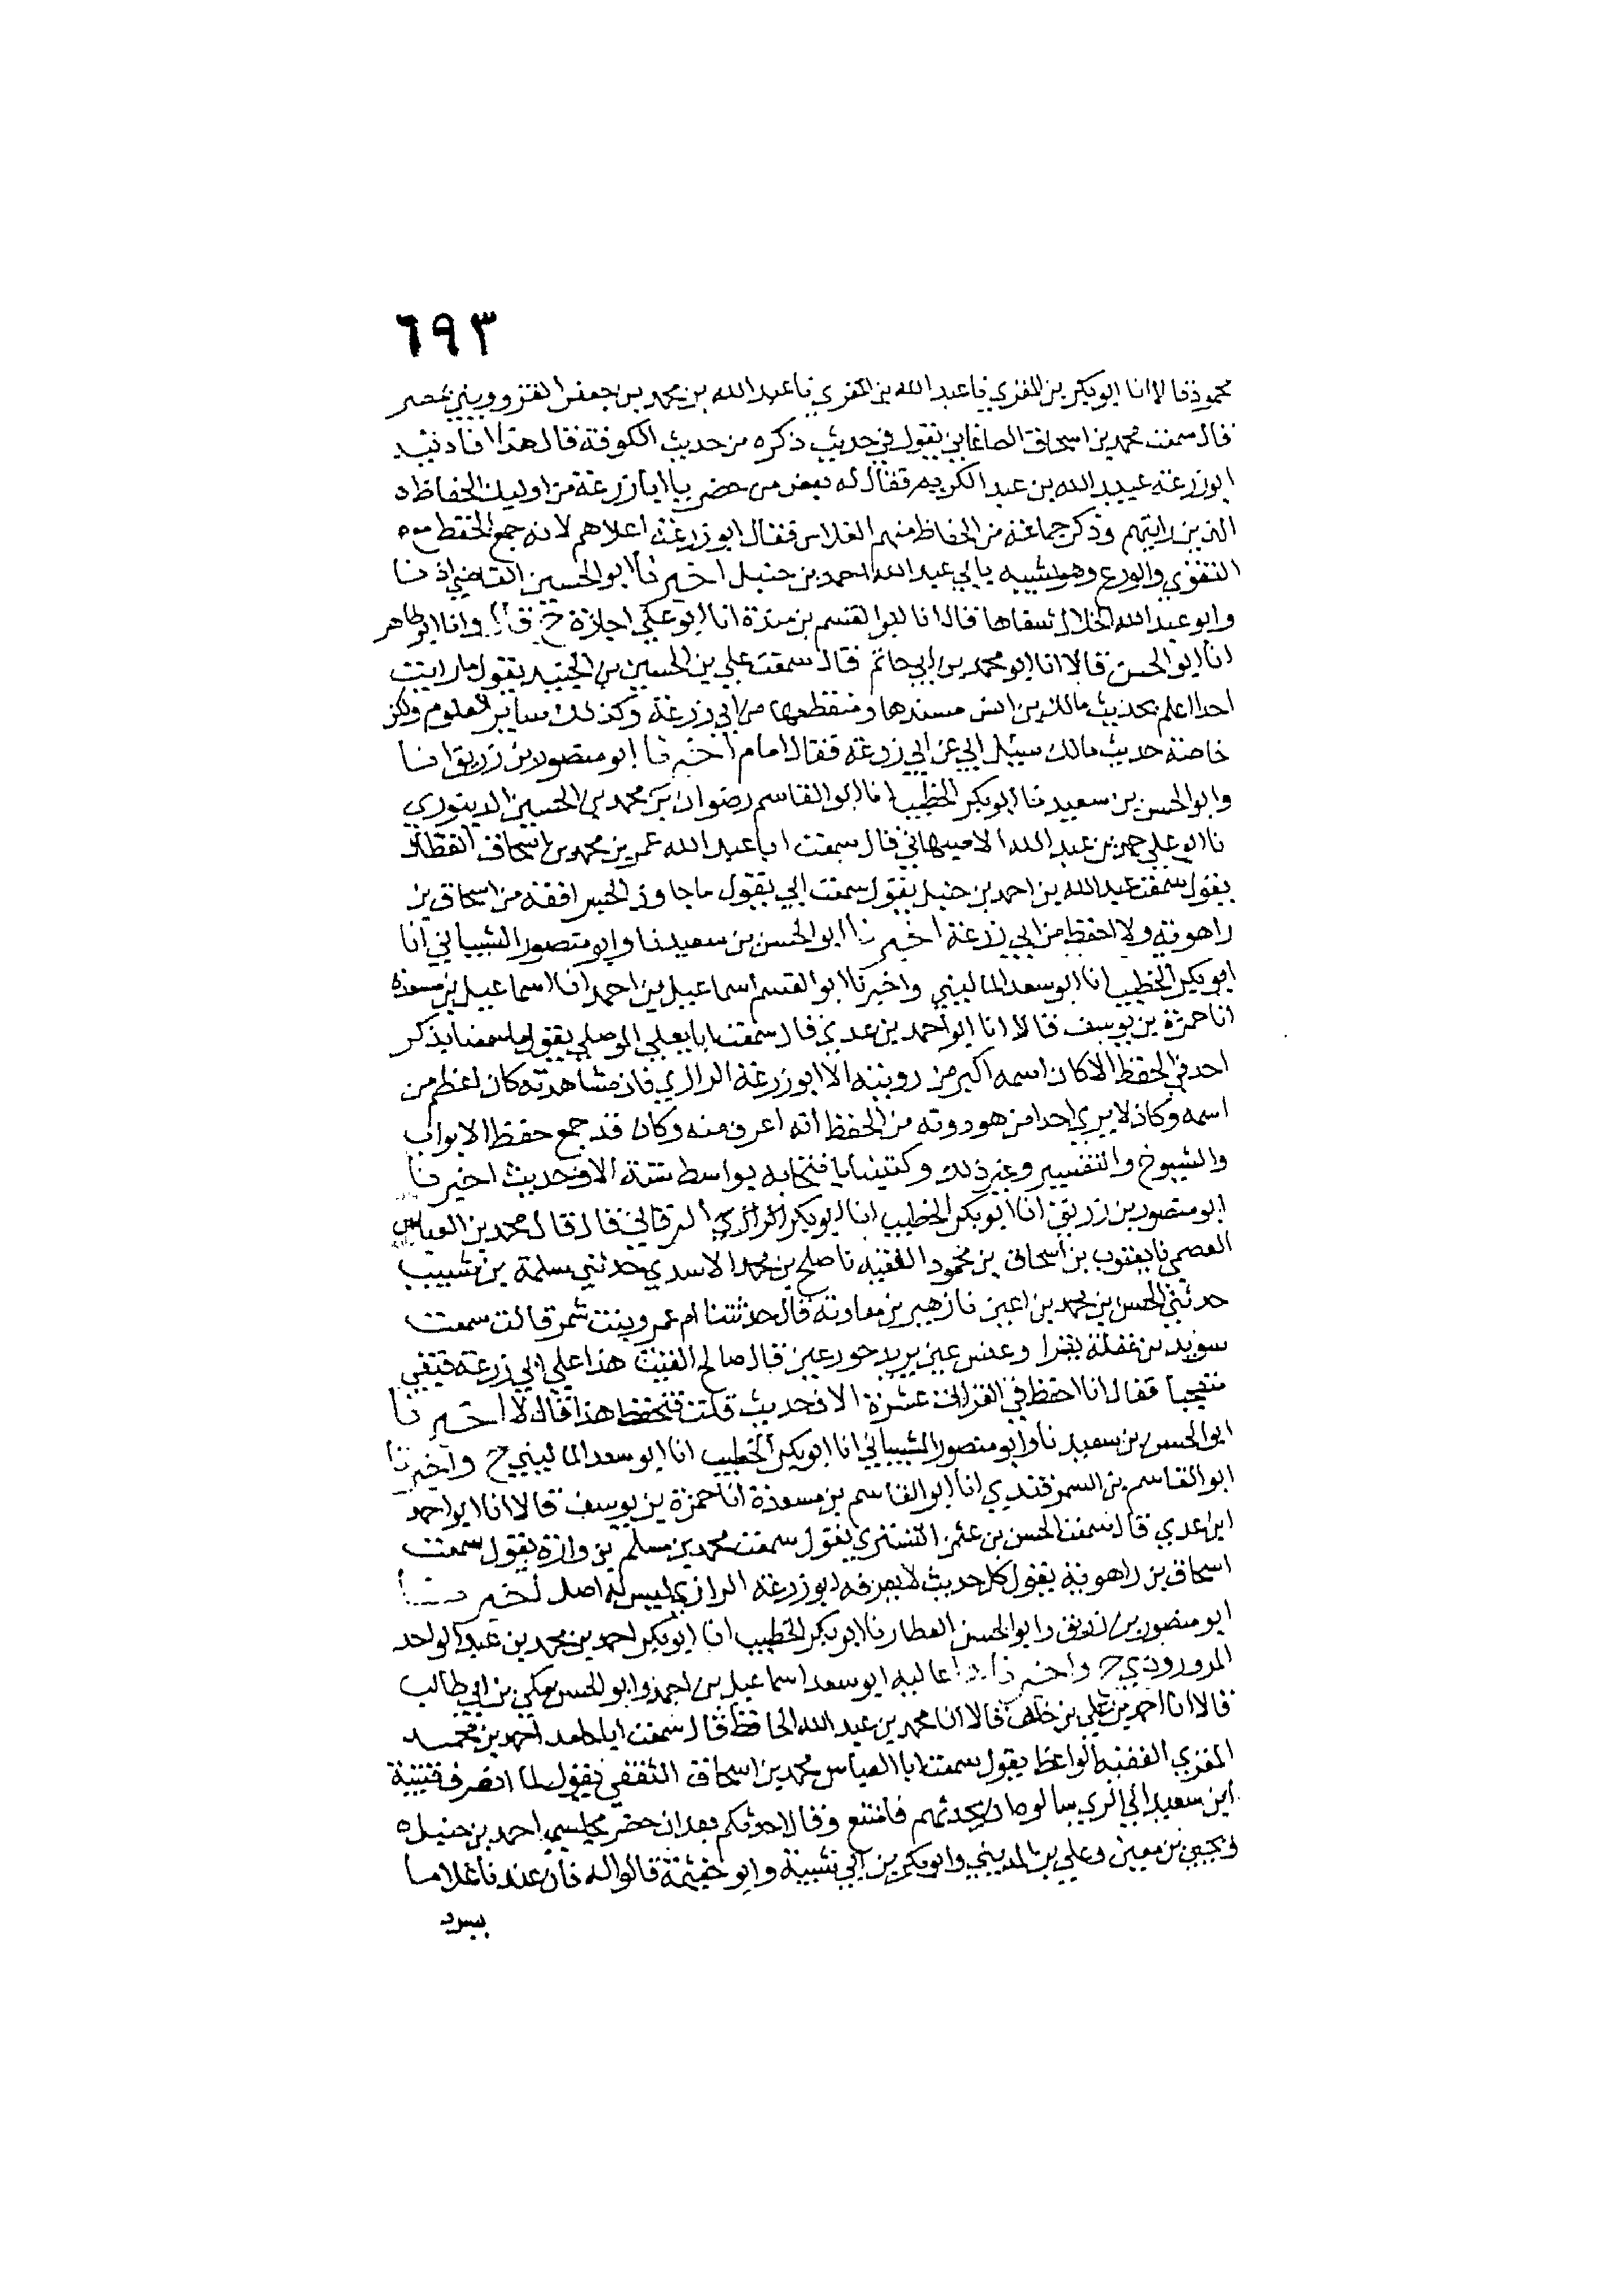 ٦٩٣
محمود قالا انا ابو بكر بن المقري نا عبد الله بن المقري نا عبد الله بن محمد بن جعفر القزويني بمصر
قال سمعت محمد بن اسحاق الصاغاني يقول في حديث ذكره من حديث الكوفة فقال هذا افادنيه
ابو زرعة عبيد الله بن عبد الكريم فقال له بعض من حضر يا ابا بكر ابو زرعة من اوليك الحفاظ
الذين رايتهم وذكر جماعة من الحفاظ منهم الفلاس فقال ابو زرعة اعلاهم لانه جمع الحفظ مع
التقوي والورع وهو يشبه بابي عبد الله احمد بن حنبل اخبرنا ابو الحسين القاضي اذنا
وابو عبد الله الخلال شفاها قالا انا ابو القسم بن مندة انا ابو علي اجازة ح قال وانا ابو طاهر
انا ابو الحسن قالا انا ابو محمد بن ابي حاتم قال سمعت علي بن الحسين بن الجنيد يقول ما رايت
احدا اعلم بحديث مالك بن انس مسندها ومنقطعها من ابي زرعة وكذلك ساير العلوم ولكن
خاصة حديث مالك سيل ابي عن ابي زرعة فقال امام اخبرنا ابو منصور بن زريق انا
وابو الحسن بن سعيد نا ابو بكر الخطيب انا ابو القاسم رضوان بن محمد بن الحسين الدينوري
نا ابو علي حمد بن عبد الله الاصبهاني قال سمعت ابا عبد الله عمر بن محمد بن اسحاق القطان
يقول سمعت عبد الله بن احمد بن حنبل يقول سمعت ابي يقول ما جاوز الجسر افقه من اسحاق بن
راهوية ولا احفظ من ابي زرعة اخبرنا ابو الحسن بن سعيد نا وابو منصور الشيباني انا
ابو بكر الخطيب انا ابو سعد الماليني واخبرنا ابو القسم اسماعيل بن احمد انا اسماعيل بن مسعدة
انا حمزة بن يوسف قالا انا ابو احمد بن عدي قال سمعت ابا يعلي الموصلي يقول ما سمعنا بذكر
احد في الحفظ الا كان اسمه اكبر من رويته الا ابو زرعة الرازي فان مشاهدته كان اعظم من
اسمه وكان لا يري احدا من هو دونه من الحفظ انه اعرف منه وكان قد جمع حفظ الابواب
والشيوخ والتفسير وغير ذلك وكتبنا بانتخابه بواسط ستة الاف حديث اخبرنا
ابو منصور بن زريق انا ابو بكر الخطيب انا ابو بكر البرقاني قال قال محمد بن العباس
العصمي نا يعقوب بن اسحاق بن محمود الفقيه نا صلح بن محمد الاسدي حدثني سلمة بن شبيب
حدثني الحسن بن محمد بن اعين نا زهير بن معاوية قال حدثتنا ام عمرو بنت شمر قالت سمعت
سويد بن غفلة يقرا وعيس عين يريد حور عين قال صالح القيت هذا علي ابي زرعة فبقي
متعجبا فقال انا احفظ في القراات عشرة الاف حديث قلت فتحفظ هذا قال لا اخبرنا
ابو الحسن بن سعيد نا وابو منصور الشيباني انا ابو بكر الخطيب انا ابو سعد الماليني ح واخبرنا
ابو القاسم بن السمرقندي انا ابو القاسم بن مسعدة انا حمزة بن يوسف قالا انا ابو احمد
ابن عدي قال سمعت الحسن بن عثمن التستري يقول سمعت محمد بن مسلم بن وارة يقول سمعت
اسحاق بن راهوية يقول كل حديث لا يعرفه ابو زرعة الرازي ليس له اصل اخبرنا
ابو منصور بن زريق وابو الحسن العطار نا ابو بكر الخطيب انا ابو بكر احمد بن محمد بن عبد الواحد
المروروذي ح واخبرنا عاليه ابو سعد اسماعيل بن احمد وابو الحسن مكي بن ابي طالب
قالا انا احمد بن علي بن خلف قالا انا محمد بن عبد الله الحافظ قال سمعت ابا حامد احمد بن محمد
المقري الفقيه الواعظ يقول سمعت ابا العباس محمد بن اسحاق الثقفي يقول لما انصرف قتيبة
ابن سعيد الي الري سالوه ان يحدثهم فامتنع وقال احدثكم بعد ان حضر مجلسي احمد بن حنبل
ويحيي بن معين وعلي بن المديني وابو بكر بن ابي شيبة وابو خيثمة قالوا له فان عندنا غلاما
يسرد